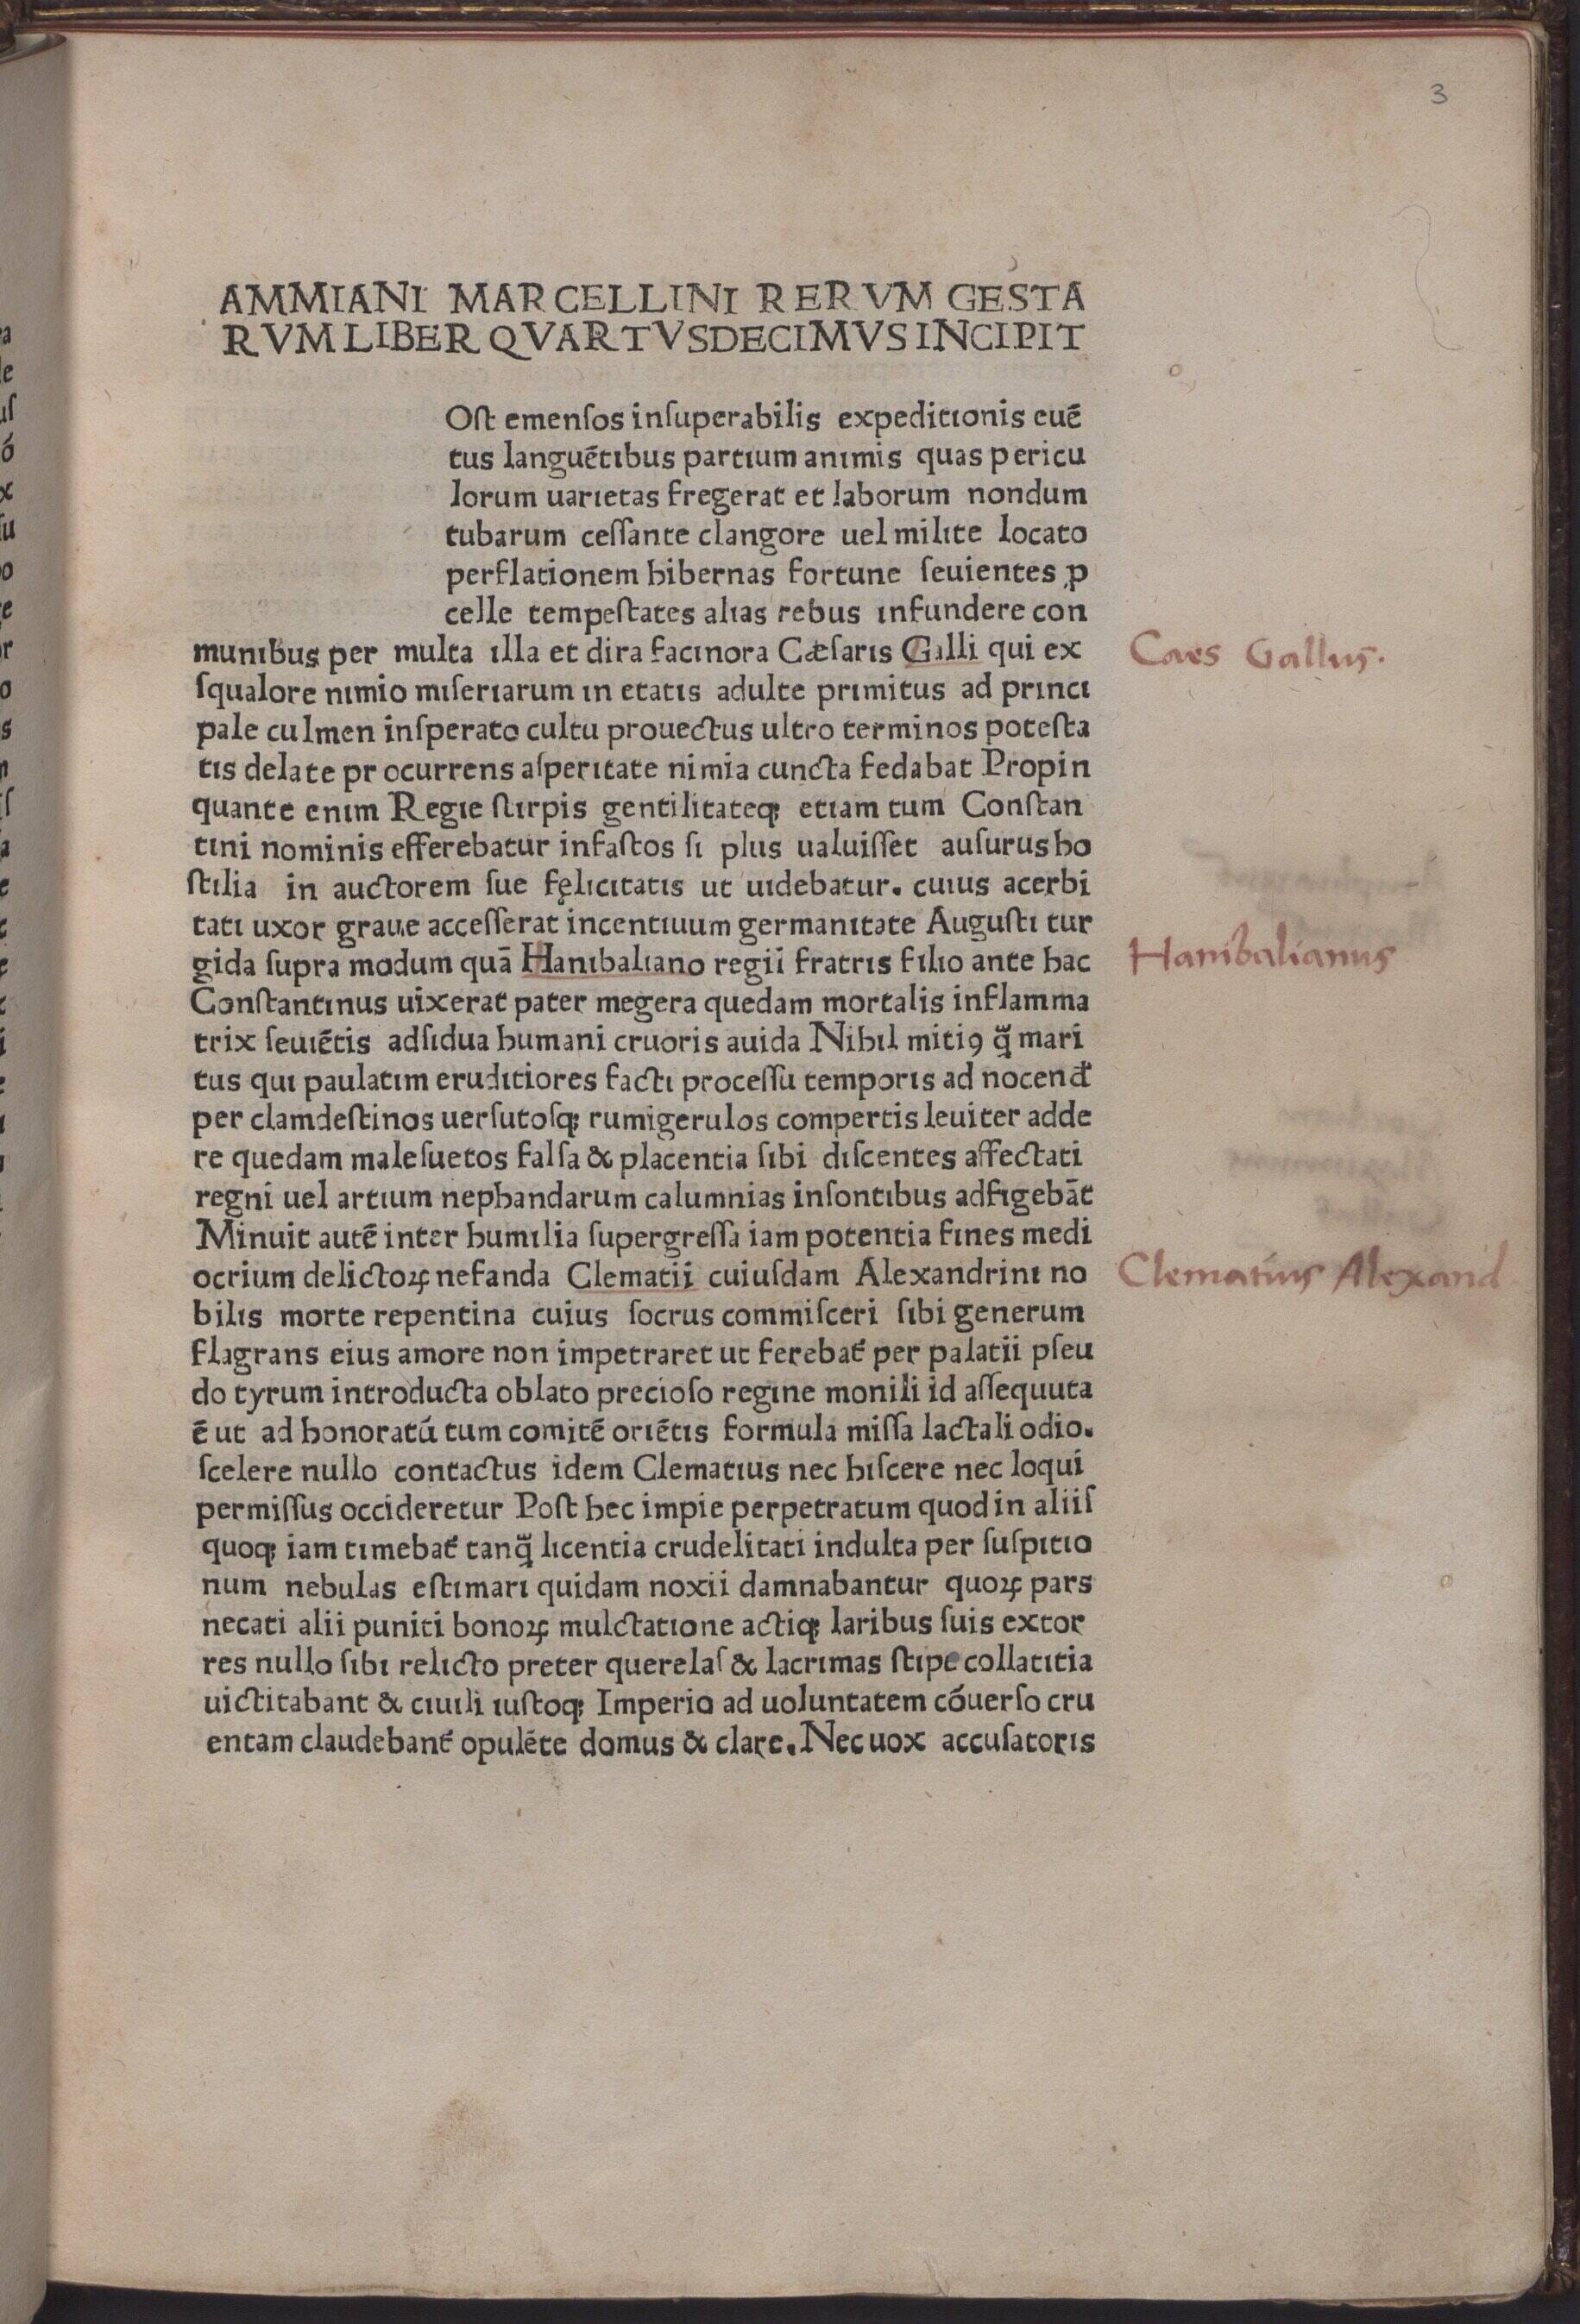 3
AMMIANI MARCELLINI RERVM GESTA
RVM LIBER QVARTVSDECIMVS INCIPIT
Oſt emenſos inſuperabilis expeditionis euē
tus languētibus partium animis quas pericu
lorum uarietas fregerat et laborum nondum
tubarum ceſſante clangore uel milite locato
perflationem hibernas fortune ſeuientes ꝓ
celle tempeſtates alias rebus infundere con
munibus per multa illa et dira facinora Cæſaris Galli qui ex
Caes Gallus.
ſqualore nimio miſeriarum in etatis adulte primitus ad princi
pale culmen inſperato cultu prouectus ultro terminos poteſta
tis delate procurrens aſperitate nimia cuncta fedabat Propin
quante enim Regie ſtirpis gentilitateqꝫ etiam tum Conſtan
tini nominis efferebatur infaſtos ſi plus ualuiſſet auſurus ho
ſtilia in auctorem ſue fęlicitatis ut uidebatur. cuius acerbi
tati uxor graue acceſſerat incentiuum germanitate Auguſti tur
gida ſupra modum quā Hanibaliano regii fratris filio ante hac
Hanibalianus
Conſtantinus uixerat pater megera quedam mortalis inflamma
trix ſeuiētis adſidua humani cruoris auida Nihil mitiꝰ q̄̃ mari
tus qui paulatim eruditiores facti proceſſu temporis ad nocend̄
per clamdeſtinos uerſutoſqꝫ rumigerulos compertis leuiter adde
re quedam maleſuetos falſa & placentia ſibi diſcentes affectati
regni uel artium nephandarum calumnias inſontibus adfigebāt
Minuit autē inter humilia ſupergreſſa iam potentia fines medi
ocrium delictoꝝ nefanda Clematii cuiuſdam Alexandrini no
Clematius Alexand
bilis morte repentina cuius ſocrus commiſceri ſibi generum
flagrans eius amore non impetraret ut ferebat̄ per palatii pſeu
do tyrum introducta oblato precioſo regine monili id aſſequuta
ē ut ad honoratū tum comitē oriētis formula miſſa lactali odio.
ſcelere nullo contactus idem Clematius nec hiſcere nec loqui
permiſſus occideretur Poſt hec impie perpetratum quod in aliiſ
quoqꝫ iam timebat̄ tanq̄̃ licentia crudelitati indulta per ſuſpitio
num nebulas eſtimari quidam noxii damnabantur quoꝝ pars
necati alii puniti bonoꝝ mulctatione actiqꝫ laribus ſuis extor
res nullo ſibi relicto preter querelaſ & lacrimas ſtipe collatitia
uictitabant & ciuili iuſtoqꝫ Imperio ad uoluntatem cōuerſo cru
entam claudebant̄ opulēte domus & clare. Nec uox accuſatoris